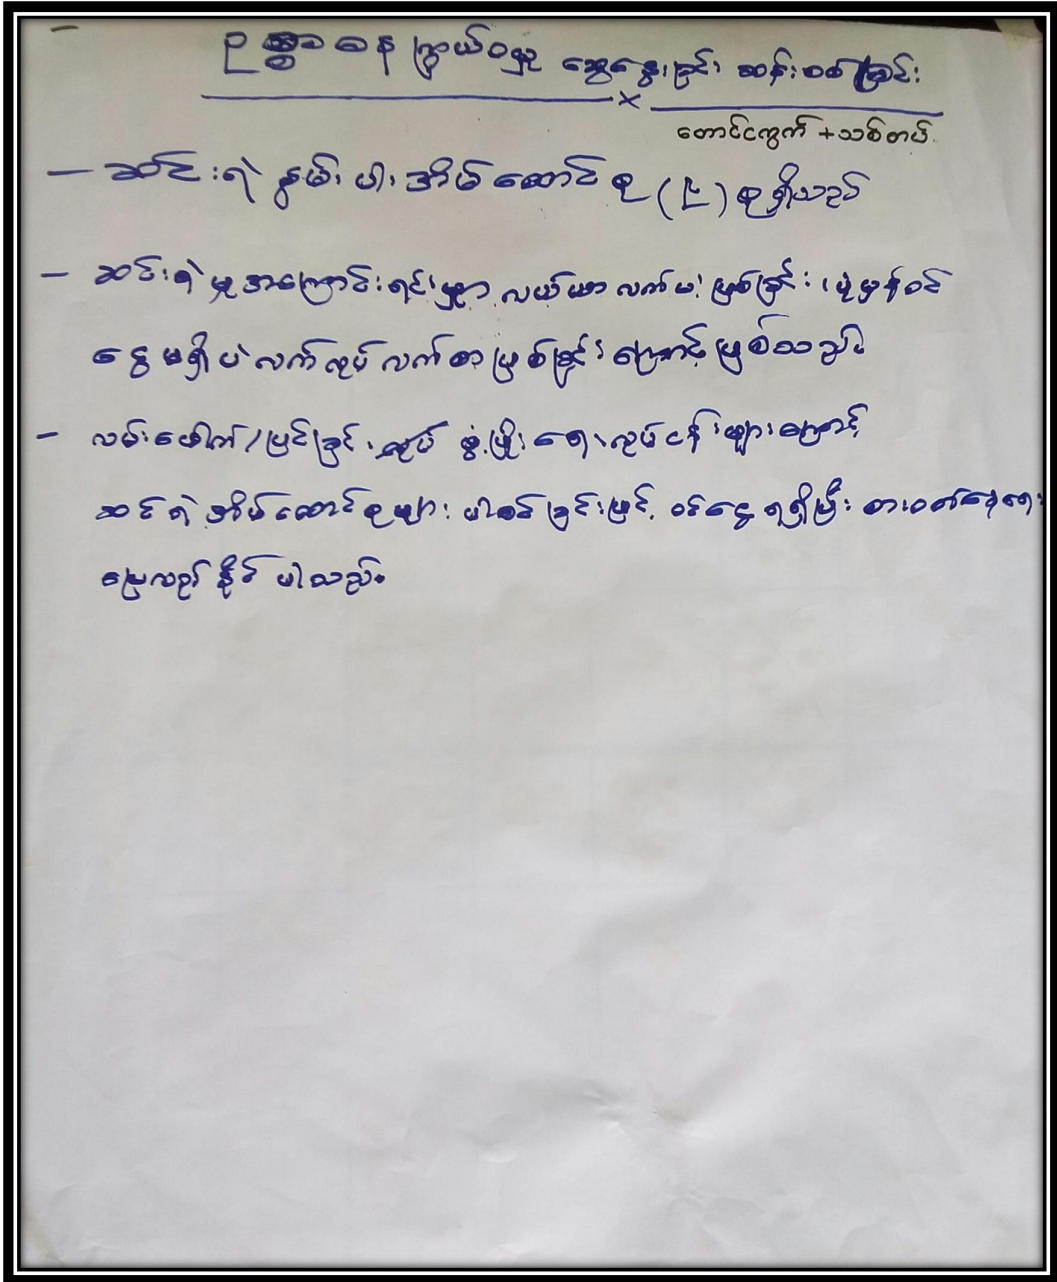 ဥစ္စာဓနကြွယ်ဝမှု ဆွေးနွေးခြင်း ဆန်းစစ်ခြင်း
တောင်ငကွက် + သစ်တပ်
– ဆင်းရဲနွမ်းပါးအိမ်ထောင်စု ( ၉ ) စုရှိသည်
– ဆင်းရဲမှုအကြောင်းရင်းမှာ လယ်ယာလက်မဲ့ဖြစ်ခြင်း၊ ပုံမှန်ဝင်
ငွေမရှိပဲ လက်လုပ်လက်စားဖြစ်ခြင်းကြောင့်ဖြစ်သည်။
– လမ်းဖောက်/ပြင်ခြင်းလုပ် ဖွံ့ဖြိုးရေးလုပ်ငန်းများကြောင့်
ဆင်းရဲအိမ်ထောင်စုများ ပါဝင်ခြင်းဖြင့် ဝင်ငွေရရှိပြီး စားဝတ်နေရေး
ပြေလည်နိုင်ပါသည်။